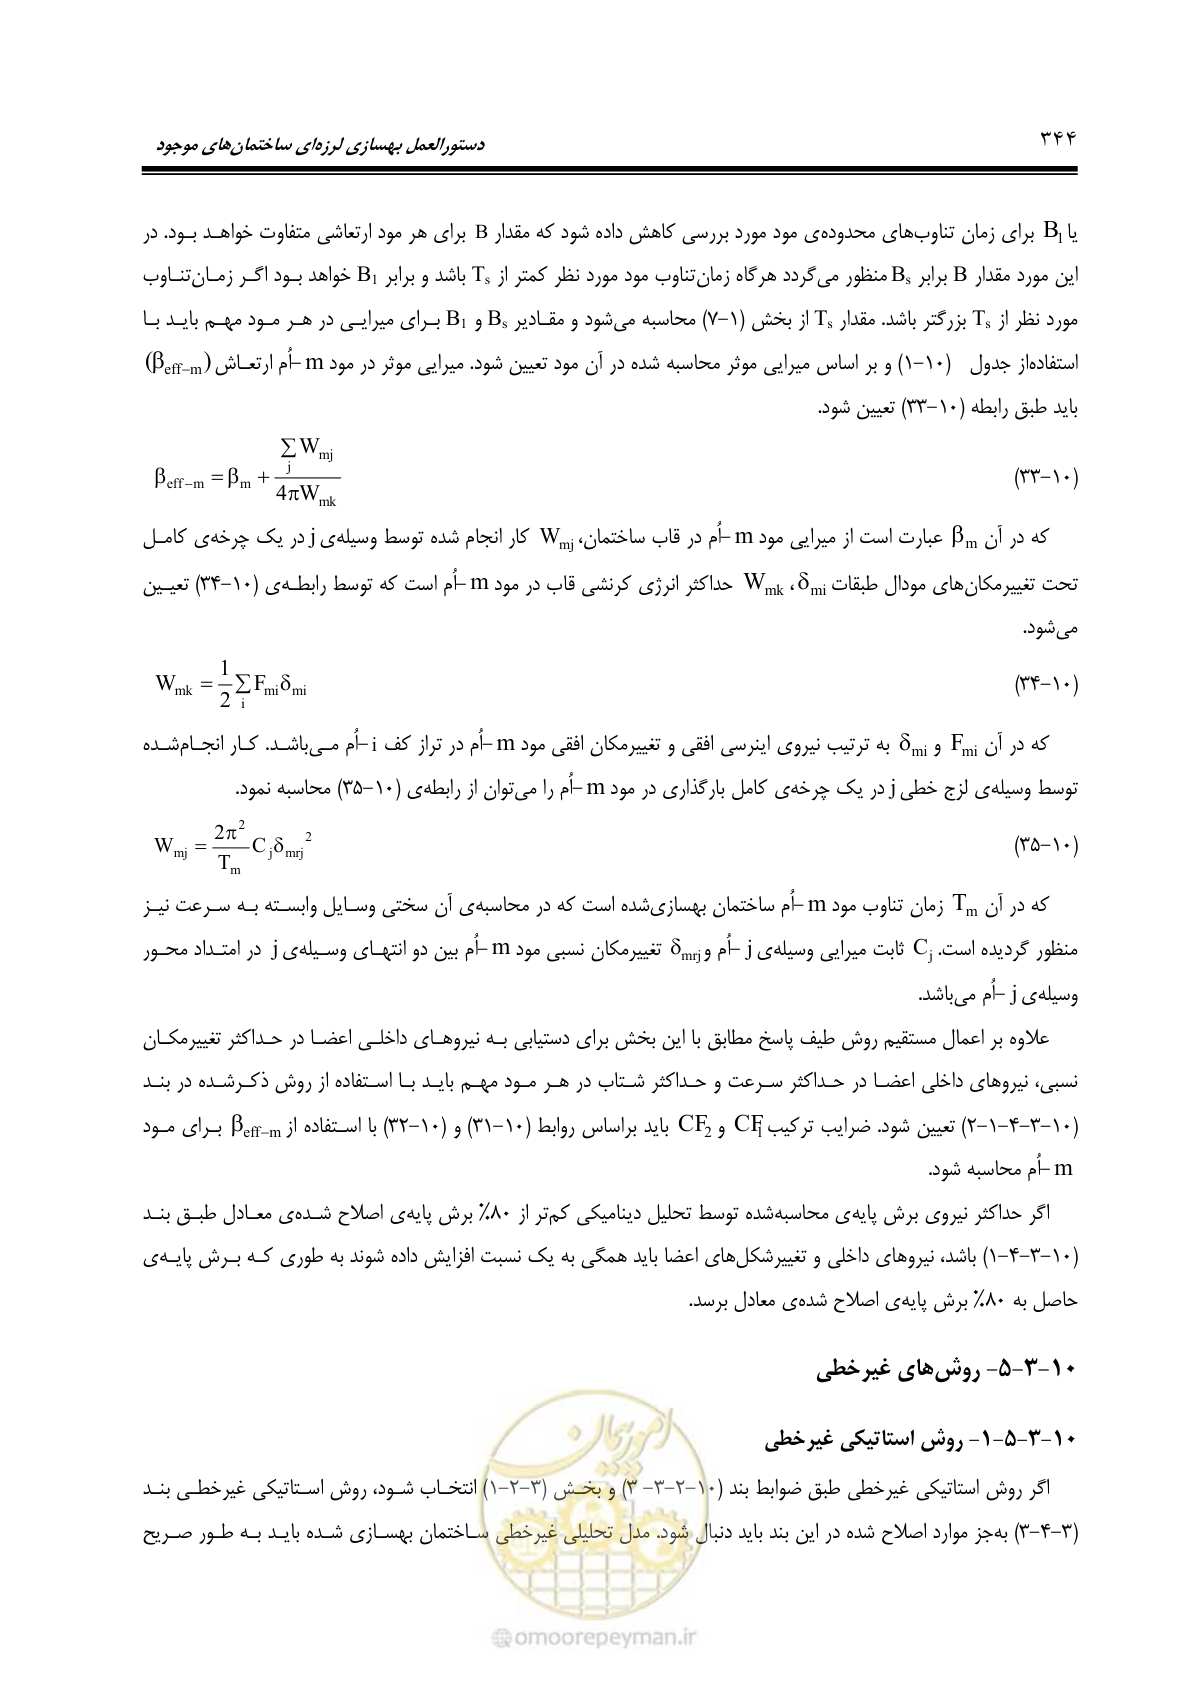 ۳۴۴
دستورالعمل بهسازی لرزه‌ای ساختمان‌های موجود
یا B1 برای زمان تناوب‌های محدوده‌ی مود مورد بررسی کاهش داده شود که مقدار B برای هر مود ارتعاشی متفاوت خواهد بود. در
این مورد مقدار B برابر Bs منظور می‌گردد هرگاه زمان‌تناوب مود مورد نظر کمتر از Ts باشد و برابر B1 خواهد بود اگر زمان‌تناوب
مورد نظر از Ts بزرگتر باشد. مقدار Ts از بخش (۱-۷) محاسبه می‌شود و مقادیر Bs و B1 برای میرایی در هر مود مهم باید با
استفاده‌از جدول (۱۰-۱) و بر اساس میرایی موثر محاسبه شده در آن مود تعیین شود. میرایی موثر در مود m-اُم ارتعاش (βeff-m)
باید طبق رابطه (۱۰-۳۳) تعیین شود.
(۱۰-۳۳) βeff-m = βm + ∑j Wmj / 4πWmk
که در آن βm عبارت است از میرایی مود m-اُم در قاب ساختمان، Wmj کار انجام شده توسط وسیله‌ی j در یک چرخه‌ی کامل
تحت تغییرمکان‌های مودال طبقات δmi، Wmk حداکثر انرژی کرنشی قاب در مود m-اُم است که توسط رابطه‌ی (۱۰-۳۴) تعیین
می‌شود.
(۱۰-۳۴) Wmk = 1/2 ∑i Fmi δmi
که در آن Fmi و δmi به ترتیب نیروی اینرسی افقی و تغییرمکان افقی مود m-اُم در تراز کف i-اُم می‌باشد. کار انجام‌شده
توسط وسیله‌ی لزج خطی j در یک چرخه‌ی کامل بارگذاری در مود m-اُم را می‌توان از رابطه‌ی (۱۰-۳۵) محاسبه نمود.
(۱۰-۳۵) Wmj = 2π²/Tm Cj δmrj²
که در آن Tm زمان تناوب مود m-اُم ساختمان بهسازی‌شده است که در محاسبه‌ی آن سختی وسایل وابسته به سرعت نیز
منظور گردیده است. Cj ثابت میرایی وسیله‌ی j-اُم و δmrj تغییرمکان نسبی مود m-اُم بین دو انتهای وسیله‌ی j در امتداد محور
وسیله‌ی j-اُم می‌باشد.
علاوه بر اعمال مستقیم روش طیف پاسخ مطابق با این بخش برای دستیابی به نیروهای داخلی اعضا در حداکثر تغییرمکان
نسبی، نیروهای داخلی اعضا در حداکثر سرعت و حداکثر شتاب در هر مود مهم باید با استفاده از روش ذکرشده در بند
(۱۰-۳-۴-۱-۲) تعیین شود. ضرایب ترکیب CF1 و CF2 باید براساس روابط (۱۰-۳۱) و (۱۰-۳۲) با استفاده از βeff-m برای مود
m-اُم محاسبه شود.
اگر حداکثر نیروی برش پایه‌ی محاسبه‌شده توسط تحلیل دینامیکی کم‌تر از ۸۰٪ برش پایه‌ی اصلاح شده‌ی معادل طبق بند
(۱۰-۳-۴-۱) باشد، نیروهای داخلی و تغییرشکل‌های اعضا باید همگی به یک نسبت افزایش داده شوند به طوری که برش پایه‌ی
حاصل به ۸۰٪ برش پایه‌ی اصلاح شده‌ی معادل برسد.
۱۰-۳-۵- روش‌های غیرخطی
۱۰-۳-۵-۱- روش استاتیکی غیرخطی
اگر روش استاتیکی غیرخطی طبق ضوابط بند (۱۰-۲-۳-۳) و بخش (۳-۲-۱) انتخاب شود، روش استاتیکی غیرخطی بند
(۳-۴-۳) به‌جز موارد اصلاح شده در این بند باید دنبال شود. مدل تحلیلی غیرخطی ساختمان بهسازی شده باید به طور صریح
امور پیمان
omoorepeyman.ir